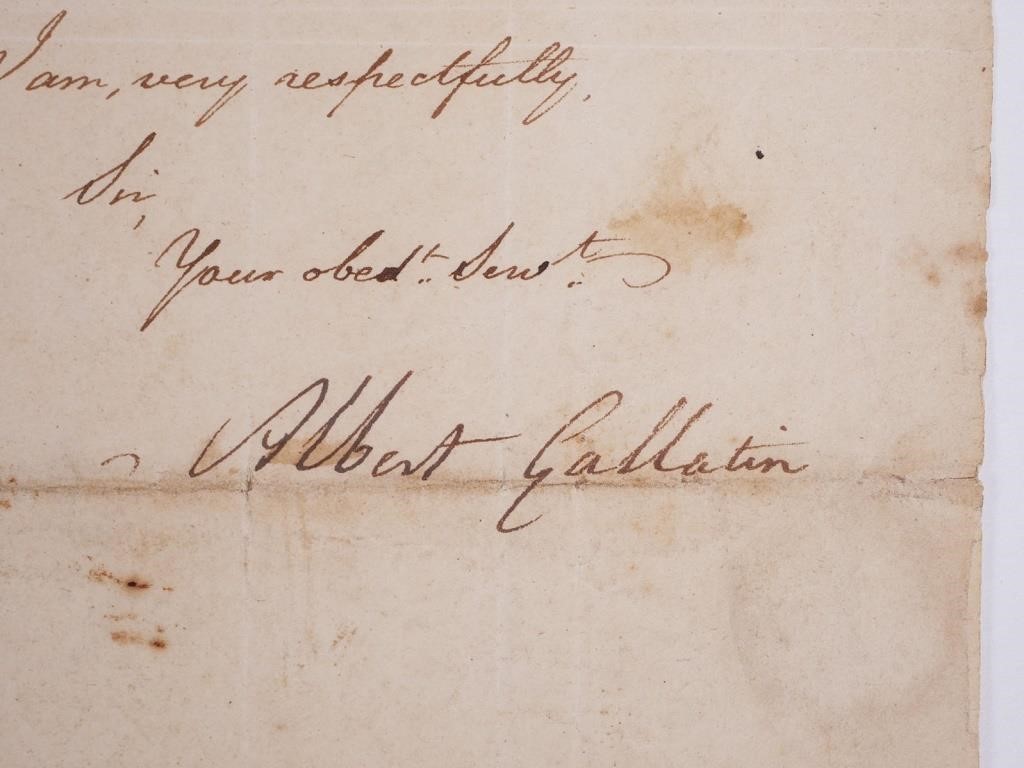 I am, very respectfully,
Sir,
Your obedt. Servt.
Albert Gallatin